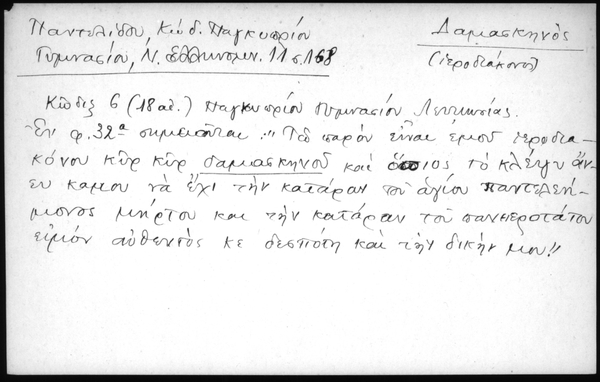 Παντελίδου, Κώδ. Παγκυπρίου
Γυμνασίου, Ν. Ελληνομν. 11 σ. 168
Δαμασκηνὸς
(ἱεροδιάκονος)
Κῶδιξ 6 (18 αἰ.) Παγκυπρίου Γυμνασίου Λευκωσίας.
Ἐπὶ φ. 32α σημειοῦται: "Τὸ παρὸν εἶναι ἐμοῦ ἱεροδια-
κόνου κὺρ κὺρ δαμασκηνοῦ καὶ ὅπιος τὸ κλέψη ἄν-
ευ καμου νὰ ἔχι τὴν κατάραν τοῦ ἁγίου παντελεή-
μονος μπήρτου καὶ τὴν κατάραν τοῦ πανιεροτάτου
εἰμόν αὐθεντὸς κὲ δεσπότη καὶ τὴν δικήν μου"